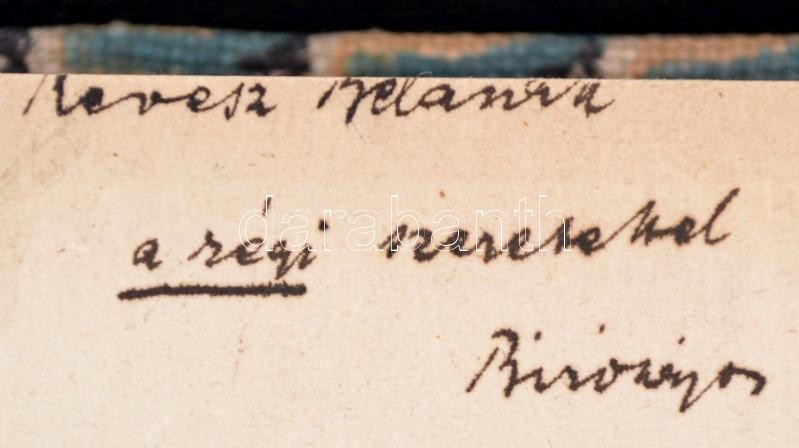 Révész Bélának
a régi szeretettel
Biró Lajos
darabanth